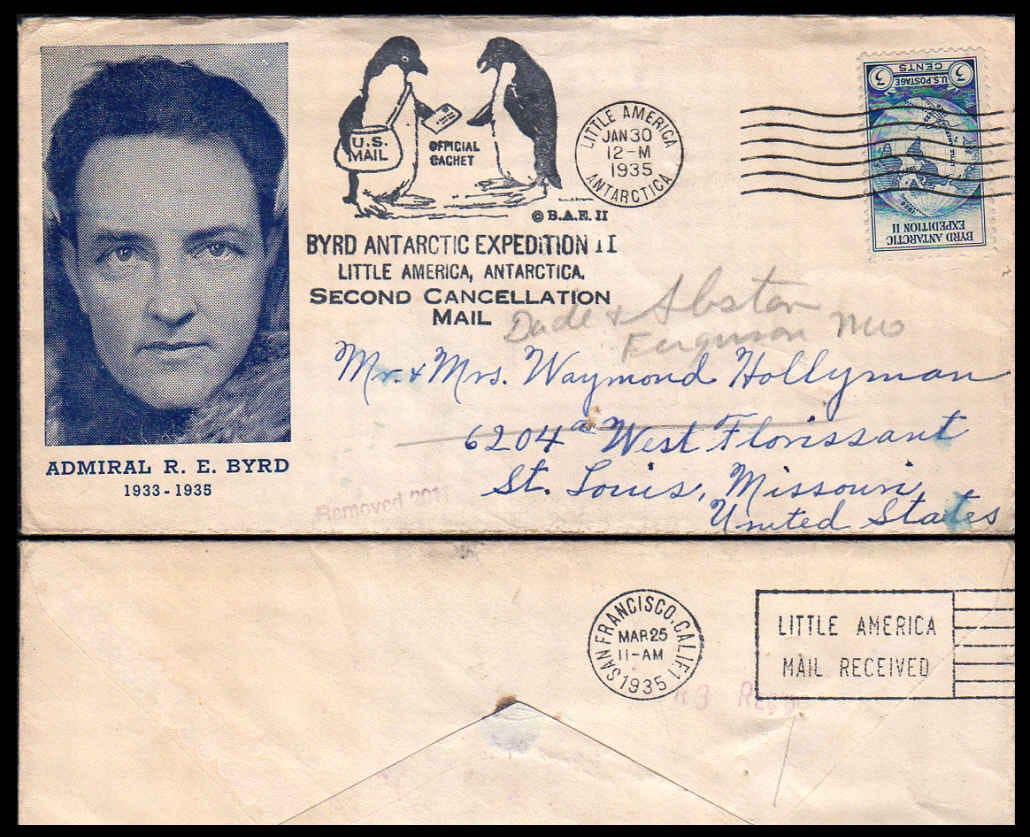 U.S.
MAIL
OFFICIAL
CACHET
© B.A.E. II
LITTLE AMERICA
JAN 30
12-M
1935
ANTARCTICA
3 U.S. POSTAGE 3
CENTS
BYRD ANTARCTIC
EXPEDITION II
BYRD ANTARCTIC EXPEDITION II
LITTLE AMERICA, ANTARCTICA.
SECOND CANCELLATION
MAIL
Dade & Abston
Ferguson Mo
Mr. & Mrs. Waymond Hollyman
6204a West Florissant
St. Louis, Missouri,
United States
ADMIRAL R. E. BYRD
1933-1935
Removed
SAN FRANCISCO, CALIF. 1
MAR 25
11-AM
1935
LITTLE AMERICA
MAIL RECEIVED